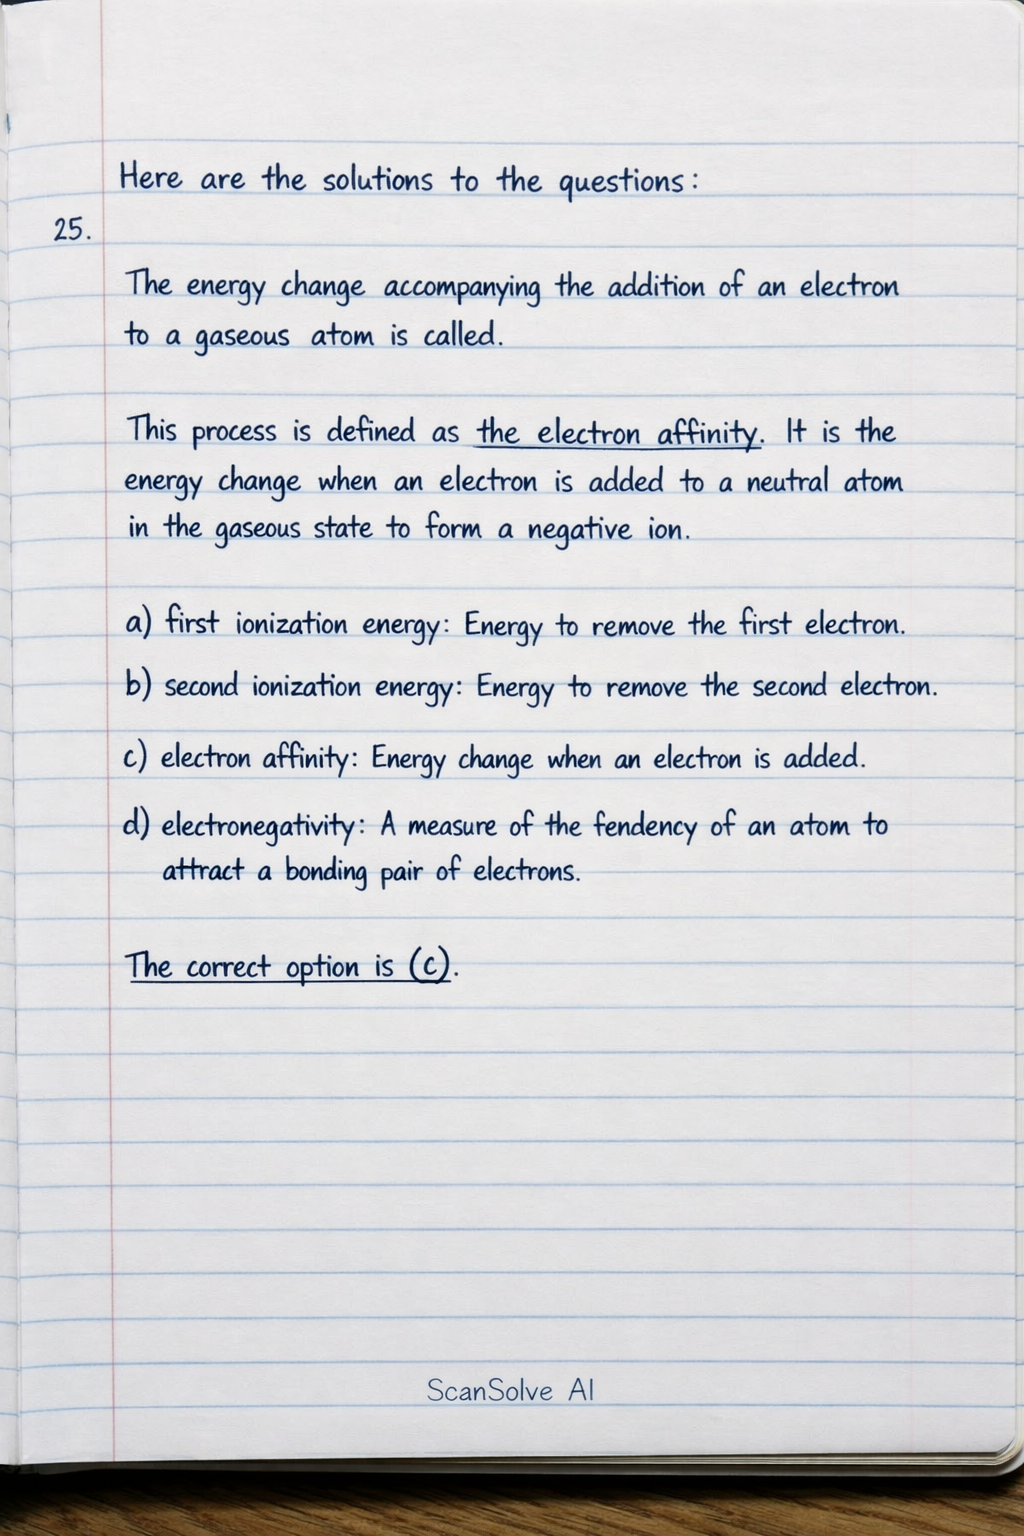 Here are the solutions to the questions:
25.
The energy change accompanying the addition of an electron
to a gaseous atom is called.
This process is defined as the electron affinity. It is the
energy change when an electron is added to a neutral atom
in the gaseous state to form a negative ion.
a) first ionization energy: Energy to remove the first electron.
b) second ionization energy: Energy to remove the second electron.
c) electron affinity: Energy change when an electron is added.
d) electronegativity: A measure of the fendency of an atom to
attract a bonding pair of electrons.
The correct option is (c).
ScanSolve AI